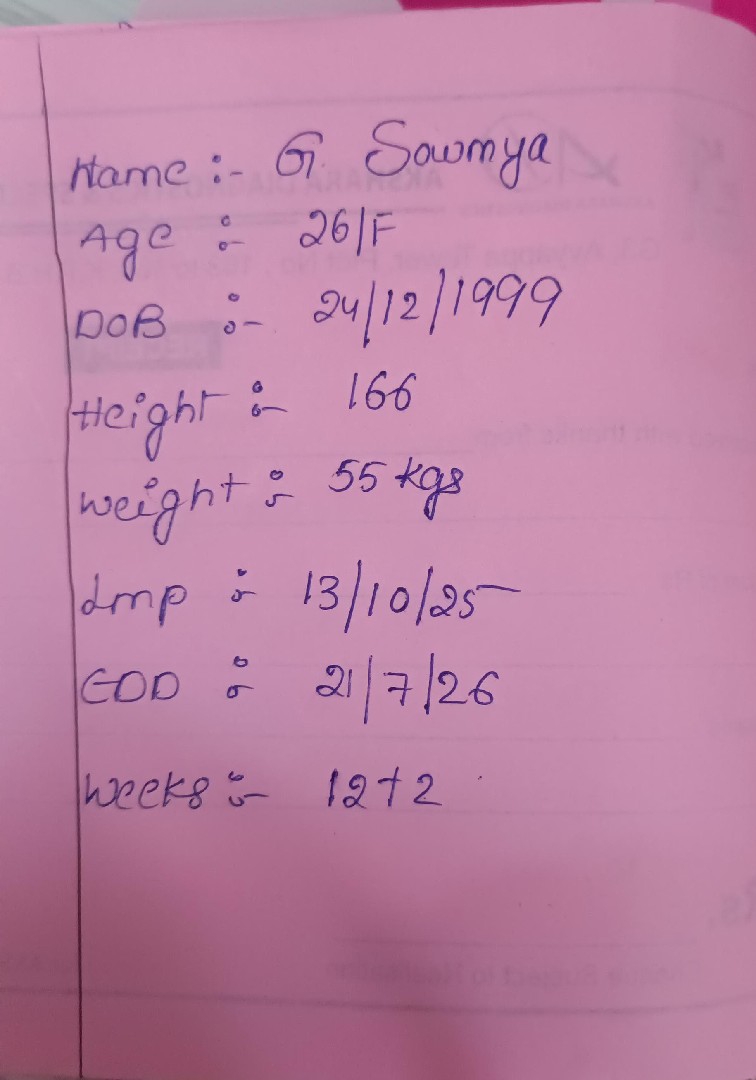 Name :- G. Sowmya
Age :- 26/F
DOB :- 24/12/1999
Height :- 166
weight :- 55 kgs
Lmp :- 13/10/25
EDD :- 21/7/26
Weeks :- 12+2